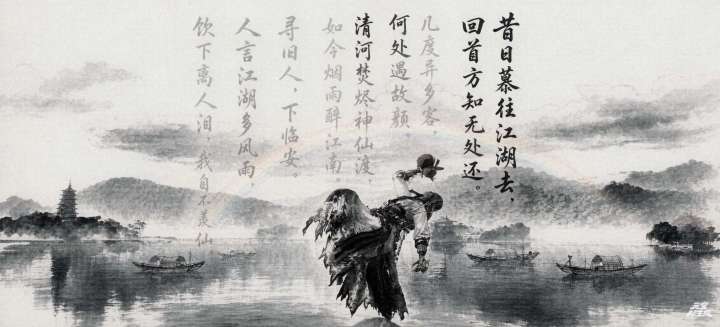 昔日慕往江湖去，
回首方知无处还。
几度异乡客，
何处遇故颜，
清河焚烬神仙渡，
如今烟雨醉江南。
寻旧人，下临安。
人言江湖多风雨，
饮下离人泪，我自不羡仙